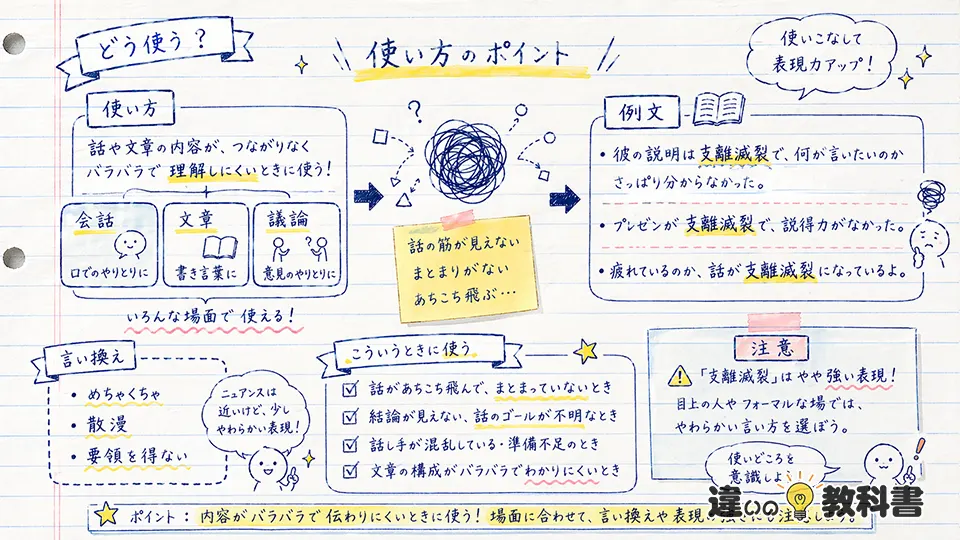 どう使う？
使い方のポイント
使いこなして
表現力アップ！
使い方
話や文章の内容が、つながりなく
バラバラで理解しにくいときに使う！
会話
口でのやりとりに
文章
書き言葉に
議論
?
意見のやりとりに
いろんな場面で使える！
?
話の筋が見えない
まとまりがない
あちこち飛ぶ…
例文
・彼の説明は支離滅裂で、何が言いたいのか
さっぱり分からなかった。
・プレゼンが支離滅裂で、説得力がなかった。
・疲れているのか、話が支離滅裂になっているよ。
言い換え
・めちゃくちゃ
・散漫
・要領を得ない
ニュアンスは
近いけど、少し
やわらかい表現！
こういうときに使う
話があちこち飛んで、まとまっていないとき
結論が見えない、話のゴールが不明なとき
話し手が混乱している・準備不足のとき
文章の構成がバラバラでわかりにくいとき
注意
「支離滅裂」はやや強い表現！
目上の人やフォーマルな場では、
やわらかい言い方を選ぼう。
使いどころを
意識しよ
違いの教科書
ポイント：内容がバラバラで伝わりにくいときに使う！場面に合わせて、言い換えや表現の